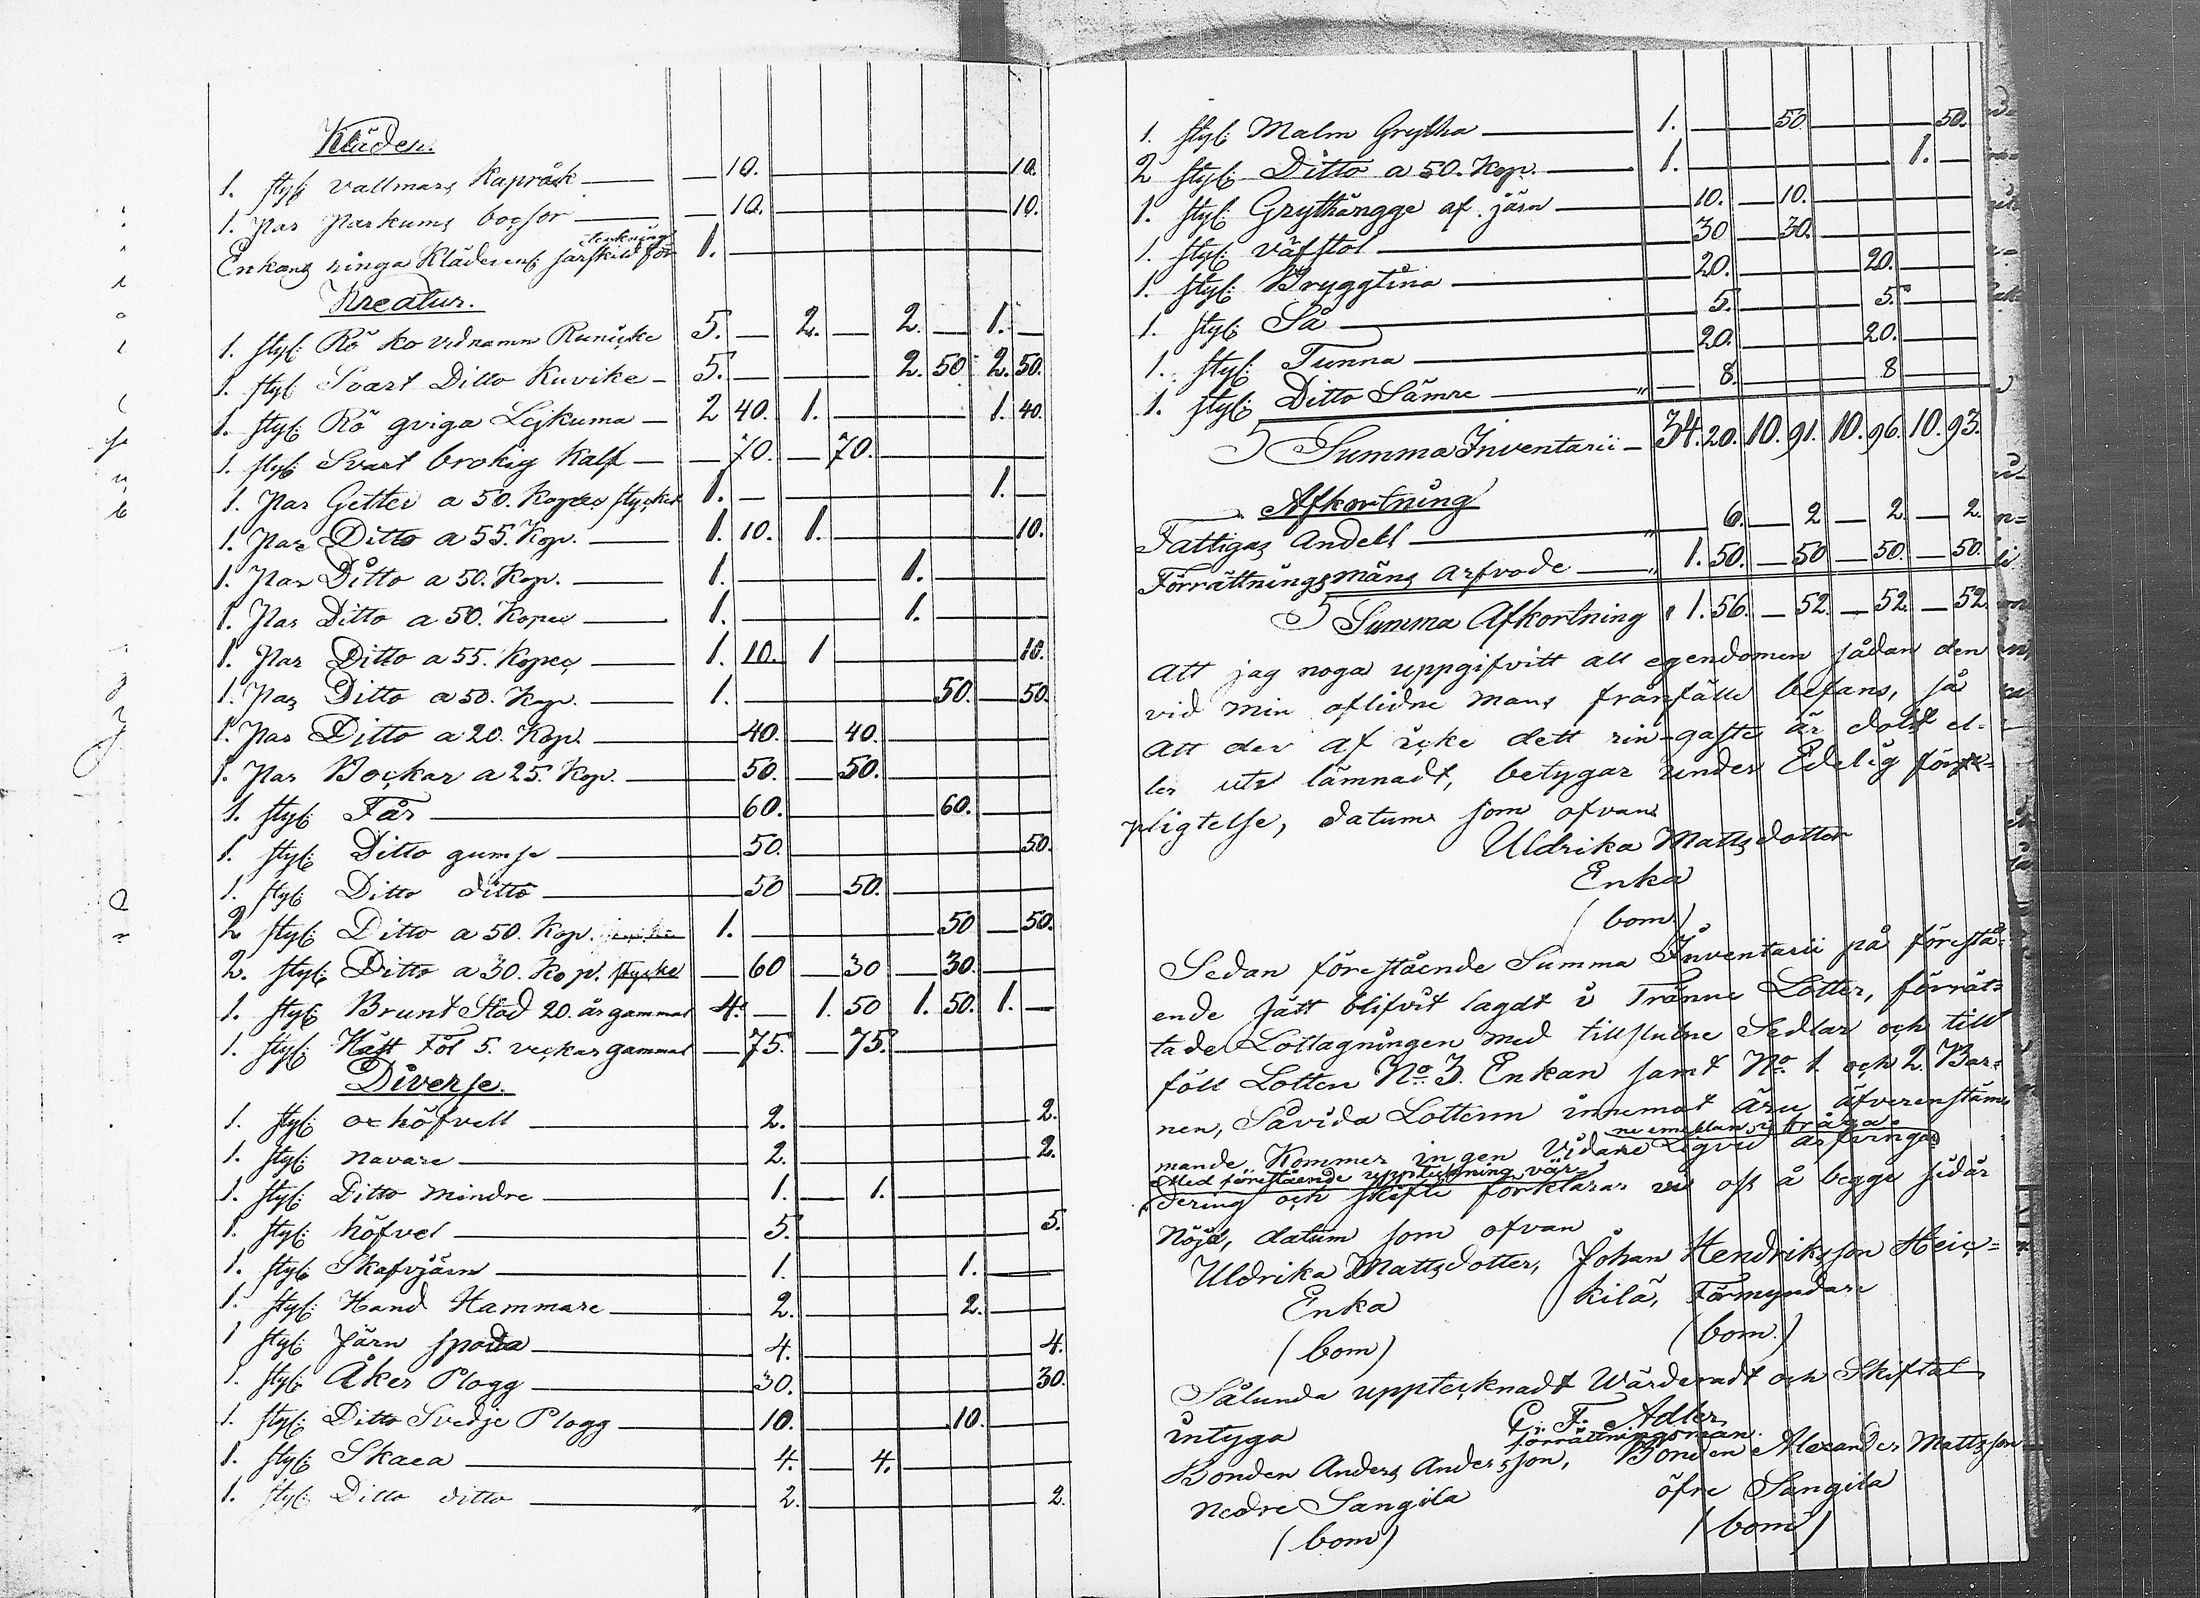 Kläder.
1. styk vallmars Kapråck — 10. — 10.
1. Par Parkums boxsor — 10. — 10.
Enkans ringa Kläder enl. särskild för
teckning 1. —
Kreatur.
1. styk: Rö ko vidnamn Runicke 5. — 2. — 2. — 1. —
1. styk Svart Ditto Kuvike — 5. — 2. 50 2. 50.
1. styk: Rö qviga Lejkuma — 2 40. 1. — 1. 40.
1. styk Svart brokig Kalf — 70. — 70. —
1. Par Getter a 50. Kopec stycket 1. — 1. —
1. Par Ditto a 55. Kop. — 1. 10. 1. — 10.
1. Par Ditto a 50. Kop. — 1. — 1. —
1. Par Ditto a 50. Kopec — 1. — 1. —
1. Par Ditto a 55. Kopec — 1. 10. 1 — 10.
1. Par Ditto a 50. Kop. — 1. — 50. — 50.
1. Par Ditto a 20. Kop. — 40. — 40. —
1. Par Bockar a 25. Kop. — 50. — 50. —
1. styk Får — 60. — 60. —
1. styk: Ditto gumse — 50. — 50.
1. styk Ditto ditto — 50 — 50. —
2 styk: Ditto a 50. Kop. 1. — 50 — 50.
2. styk: Ditto a 30. Kop. stycke — 60 — 30 — 30. —
1. styk Brunt Stod 20. år gammal 4. — 1. 50 1. 50. 1. —
1. styk: Häst Föl 5. veckar gammal — 75. — 75. —
Diverse.
1. styk: oxhöfvell — 2. — 2.
1. styk: navare — 2. — 2.
1. styk: Ditto mindre — 1. — 1. —
1. styk: höfvel — 5. — 5.
1. styk: Skafvjärn — 1. — 1. —
1. styk: Hand Hammare — 2. — 2. —
1 styk: Järn spada — 4. — 4.
1. styk Åker Plogg — 30. — 30.
1. styk: Ditto Svedje Plogg — 10. — 10. —
1. styk: Skaea — 4. — 4. —
1. styk: Ditto ditto — 2. — 2.
1. styk: Malm Grytha — 1. — 50 — 50.
2 styk: Ditto a 50. Kop. — 1. — 1. —
1. styk: Grythängge af järn — 10. — 10. —
1. styk: väfstol — 30 — 30. —
1. styk: Bryggtina — 20. — 20. —
1. styk: Så — 5. — 5. —
1. styk: Tunna — 20. — 20. —
1. styk: Ditto Sämre — 8. — 8 —
Summa Inventarii — 34. 20. 10. 91. 10. 96. 10. 93.
Afkortning
Fattigas Andel — 6. — 2 — 2 — 2.
Förrättningsmäns arfvode — 1. 50. — 50 — 50. — 50.
Summa Afkortning 1. 56. — 52. — 52 — 52
Att jag noga uppgifvitt all egendomen sådan den
vid min aflidne Mans frånfälle befans, så
Att der af icke dett rin-gaste är dolt el-
ler ute lämnadt, betygar under Edelig för-
pligtelse, datum som ofvan
Uldrika Mattsdotter
Enka
(bom)
Sedan förestående Summa Inventarii på förestå-
ende sätt blifvit lagdt i Tränne Lotter, förrät-
tade Lottagningen med tillslutne Sedlar och till
föll Lotten No 3. Enkan samt No. 1 och 2. Bar-
nen, Såvida Lotterne innemot äro äfverenstäm-
mande, Kommer ingen Vidare Ligvid arfvingar
ne emellan i fråga.
Med förestående uppteckning, vär-
dering och skifte förklarar vi oss å begge sidår
Nöjd, datum som ofvan
Uldrika Mattsdotter, Johan Hendriksson Heic-
Enka kilä, Förmyndare
(bom) (bom.)
Sålunda uppteçknadt Wärderadt och Skiftat
intyga G. F. Adler
förrättningsman.
Bonden Anders Andersson, Bonden Alexander Mattsson
nedre Sangila öfre Sangila
(bom) (bom)